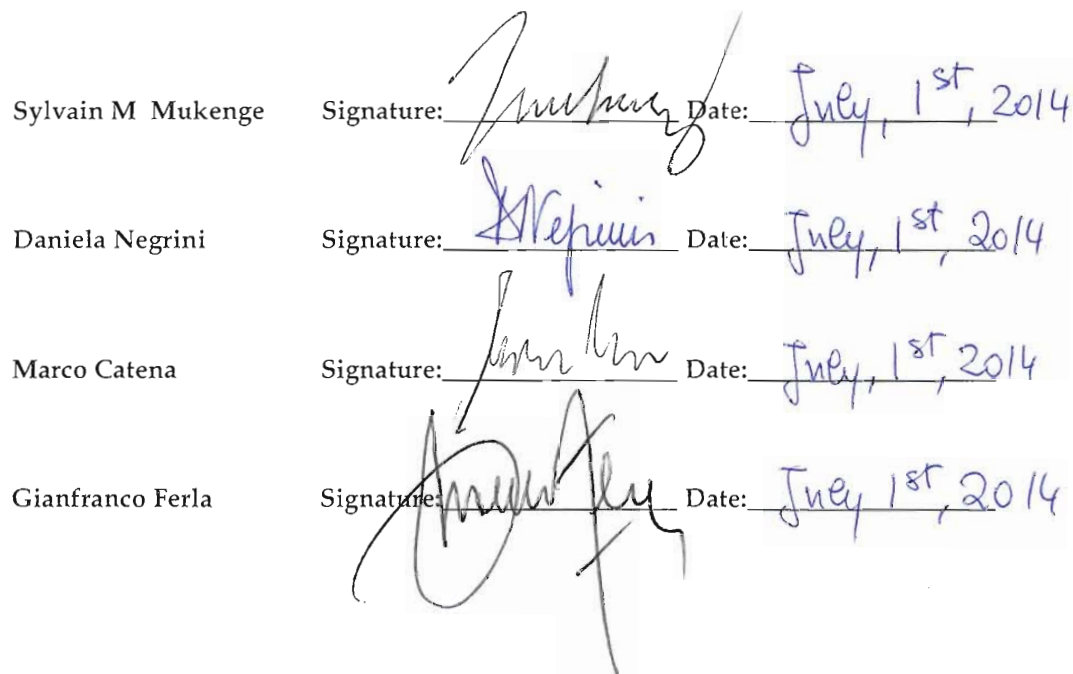 Sylvain M Mukenge Signature: Date: July, 1st, 2014
Daniela Negrini Signature: Date: July, 1st, 2014
Marco Catena Signature: Date: July, 1st, 2014
Gianfranco Ferla Signature: Date: July 1st, 2014